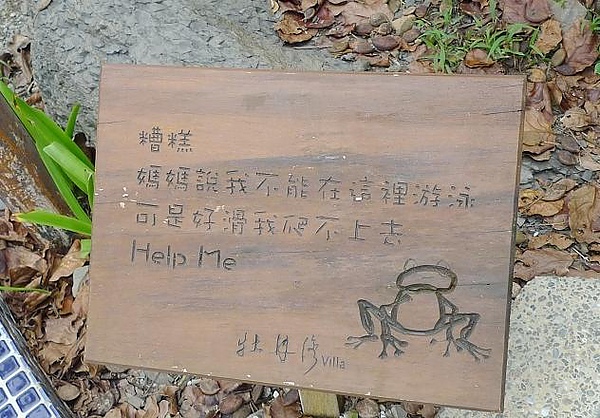 糟糕
媽媽說我不能在這裡游泳
可是好滑我爬不上去
Help Me
牡丹灣 Villa